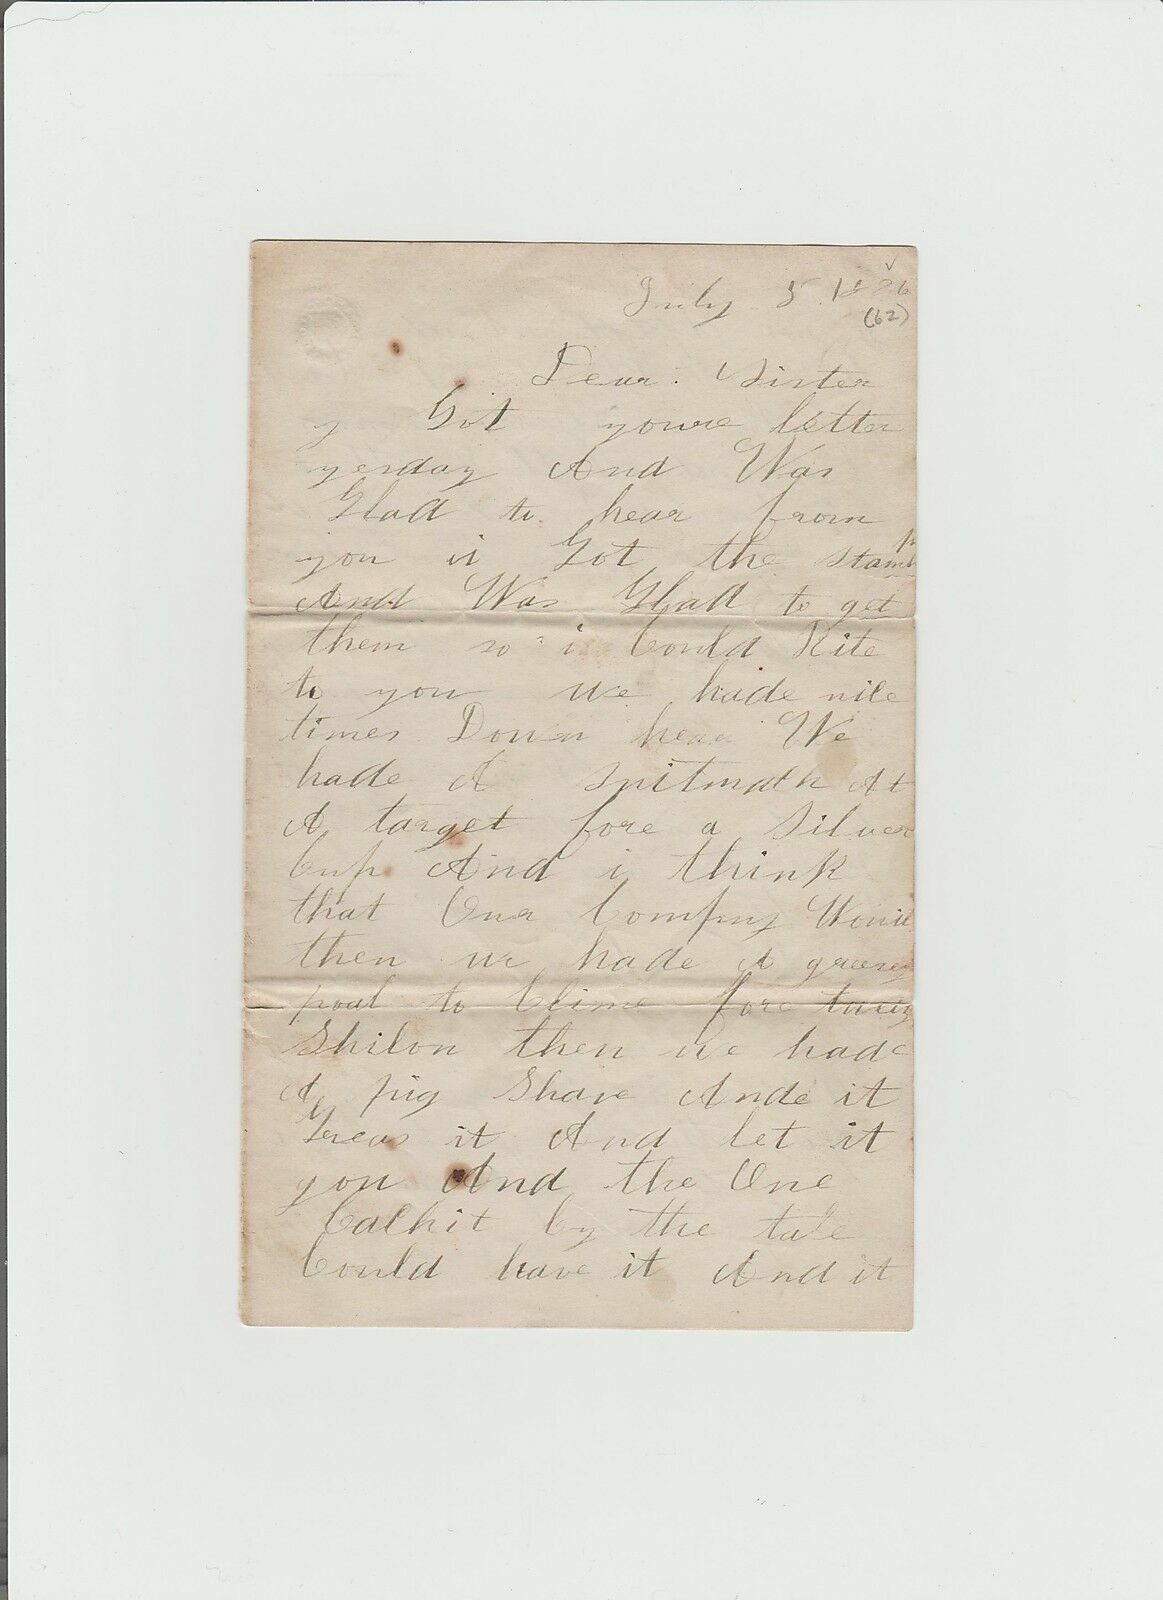 July 5 18
(62)
Dear Sister
y Got youre letter
yersday And Was
Glad to hear from
you it Got the stamp
And Was Glad to get
them so i Could Rite
to you we hade nice
times Down hear We
hade A At
A target fore a Silver
Cup And i think
that Our Compny
then we hade A greesey
poal to Clime fore
Shilon then we hade
A pig Shave Ande it
Greas it And let it
gou And the One
Calhit by the tale
Could have it And it